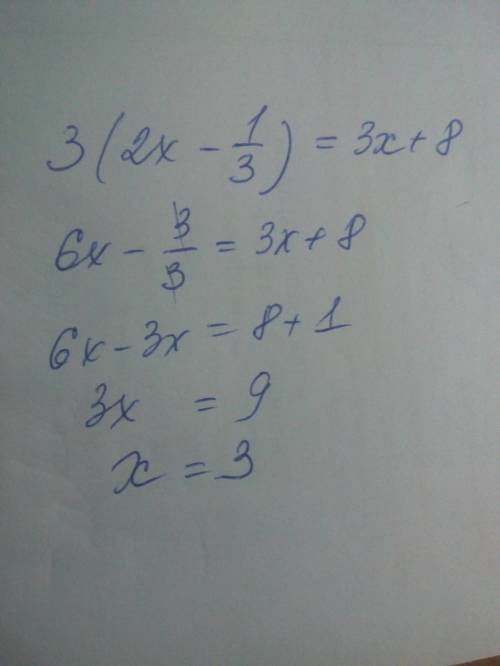 3(2x - 1/3) = 3x + 8
6x - 3/3 = 3x + 8
6x - 3x = 8 + 1
3x = 9
x = 3